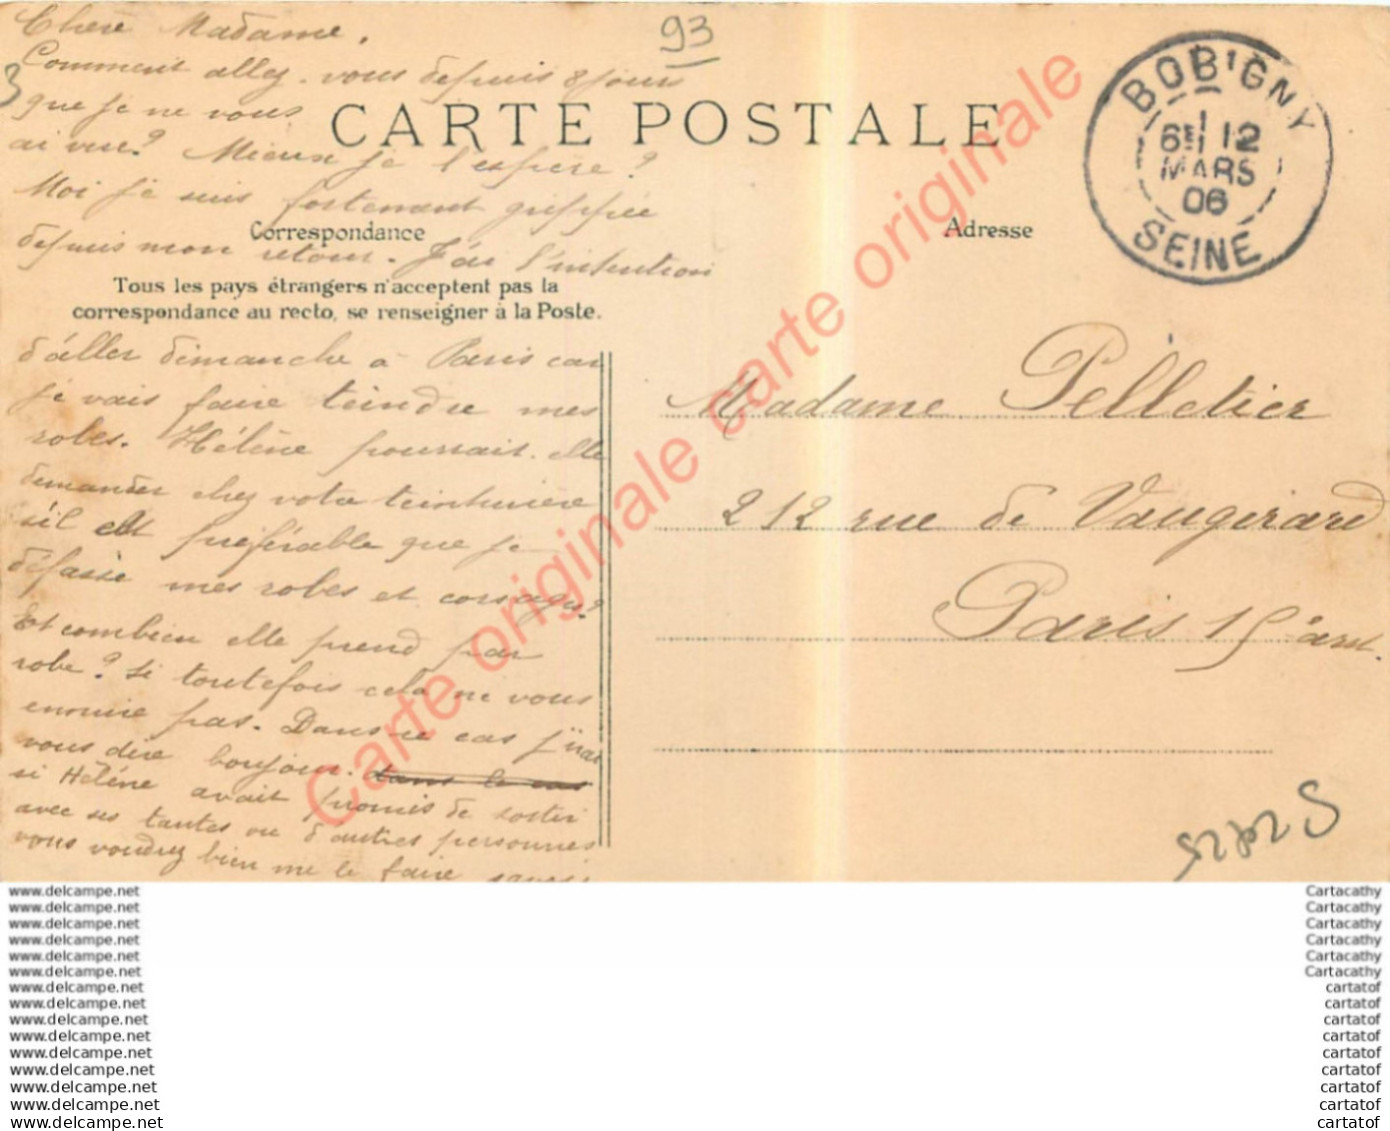 Chère Madame.
93
Comment allez-vous depuis 8 jours
3
que je ne vous
CARTE POSTALE
ai vue? Mieux je l'espère?
Moi je suis fortement grippée
Correspondance
depuis mon retour. J'ai l'intention
Tous les pays étrangers n'acceptent pas la
correspondance au recto, se renseigner à la Poste.
d'aller dimanche à Paris car
je vais faire teindre mes
robes. Hélène pourrait-elle
demander chez votre teinturière
s'il est préférable que je
défasse mes robes et corsages?
Et combien elle prend par
robe? si toutefois cela ne vous
ennuie pas. Dans ce cas j'irai
vous dire bonjour. dans le cas
si Hélène avait promis de sortir
avec ses tantes ou d'autres personnes
vous voudrez bien me le faire savoir
Adresse
BOBIGNY
6E 12
MARS
06
SEINE
Madame Pelletier
212 rue de Vaugirard
Paris 15 è arr.
Carte originale carte originale carte originale
www.delcampe.net Cartacathy
www.delcampe.net Cartacathy
www.delcampe.net Cartacathy
www.delcampe.net Cartacathy
www.delcampe.net Cartacathy
www.delcampe.net Cartacathy
www.delcampe.net cartatof
www.delcampe.net cartatof
www.delcampe.net cartatof
www.delcampe.net cartatof
www.delcampe.net cartatof
www.delcampe.net cartatof
www.delcampe.net cartatof
www.delcampe.net cartatof
www.delcampe.net cartatof